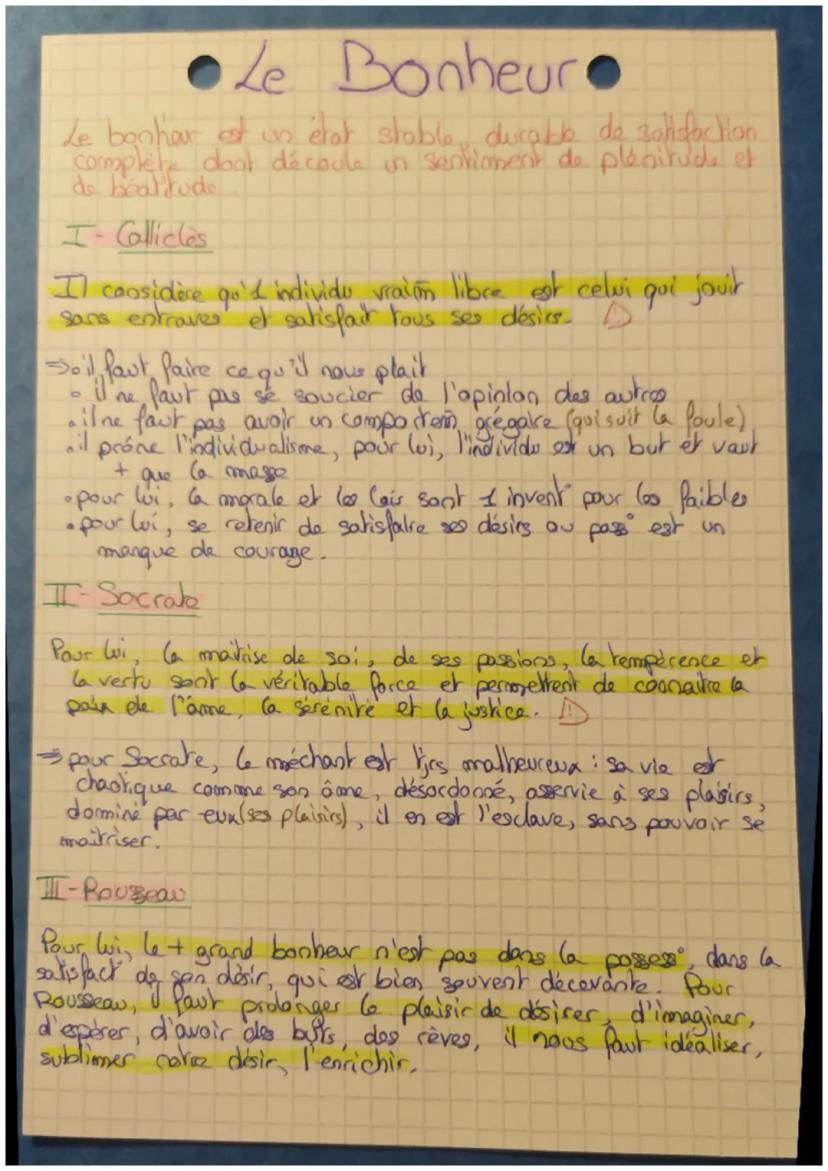 Le Bonheur
Le bonheur est un état stable, durable de satisfaction
complète dont découle un sentiment de plénitude et
de béatitude.
I - Calliclès
Il considère qu'1 individu vraim̄ libre est celui qui jouit
sans entraves et satisfait tous ses désirs. ⚠
⇒ il faut faire ce qu'il nous plait
• il ne faut pas se soucier de l'opinion des autres
• il ne faut pas avoir un comportem̄ grégaire (qui suit la foule)
• il prône l'individualisme, pour lui, l'individu est un but et vaut
+ que la masse
• pour lui, la morale et les lois sont 1 invent° pour les faibles
• pour lui, se retenir de satisfaire ses désirs ou pass° est un
manque de courage.
II - Socrate
Pour lui, la maitrise de soi, de ses passions, la tempérence et
la vertu sont la véritable force et permettent de connaitre la
paix de l'âme, la sérénité et la justice. ⚠
⇒ pour Socrate, le méchant est tjrs malheureux : sa vie est
chaotique comme son âme, désordonné, asservie à ses plaisirs,
dominé par eux (ses plaisirs), il en est l'esclave, sans pouvoir se
maitriser.
III - Rousseau
Pour lui, le + grand bonheur n'est pas dans la possess°, dans la
satisfact° de son désir, qui est bien souvent décevante. Pour
Rousseau, il faut prolonger le plaisir de désirer, d'imaginer,
d'espérer, d'avoir des buts, des rêves, il nous faut idéaliser,
sublimer notre désir, l'enrichir.